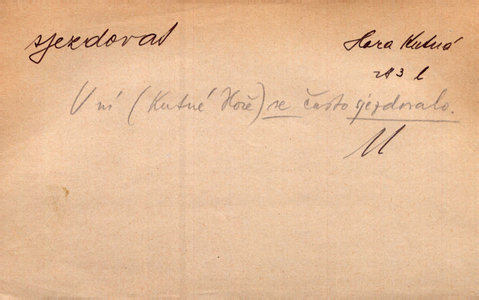 sjezdovat
Hora Kutná
V ní (Kutné Hoře) se často sjezdovalo.